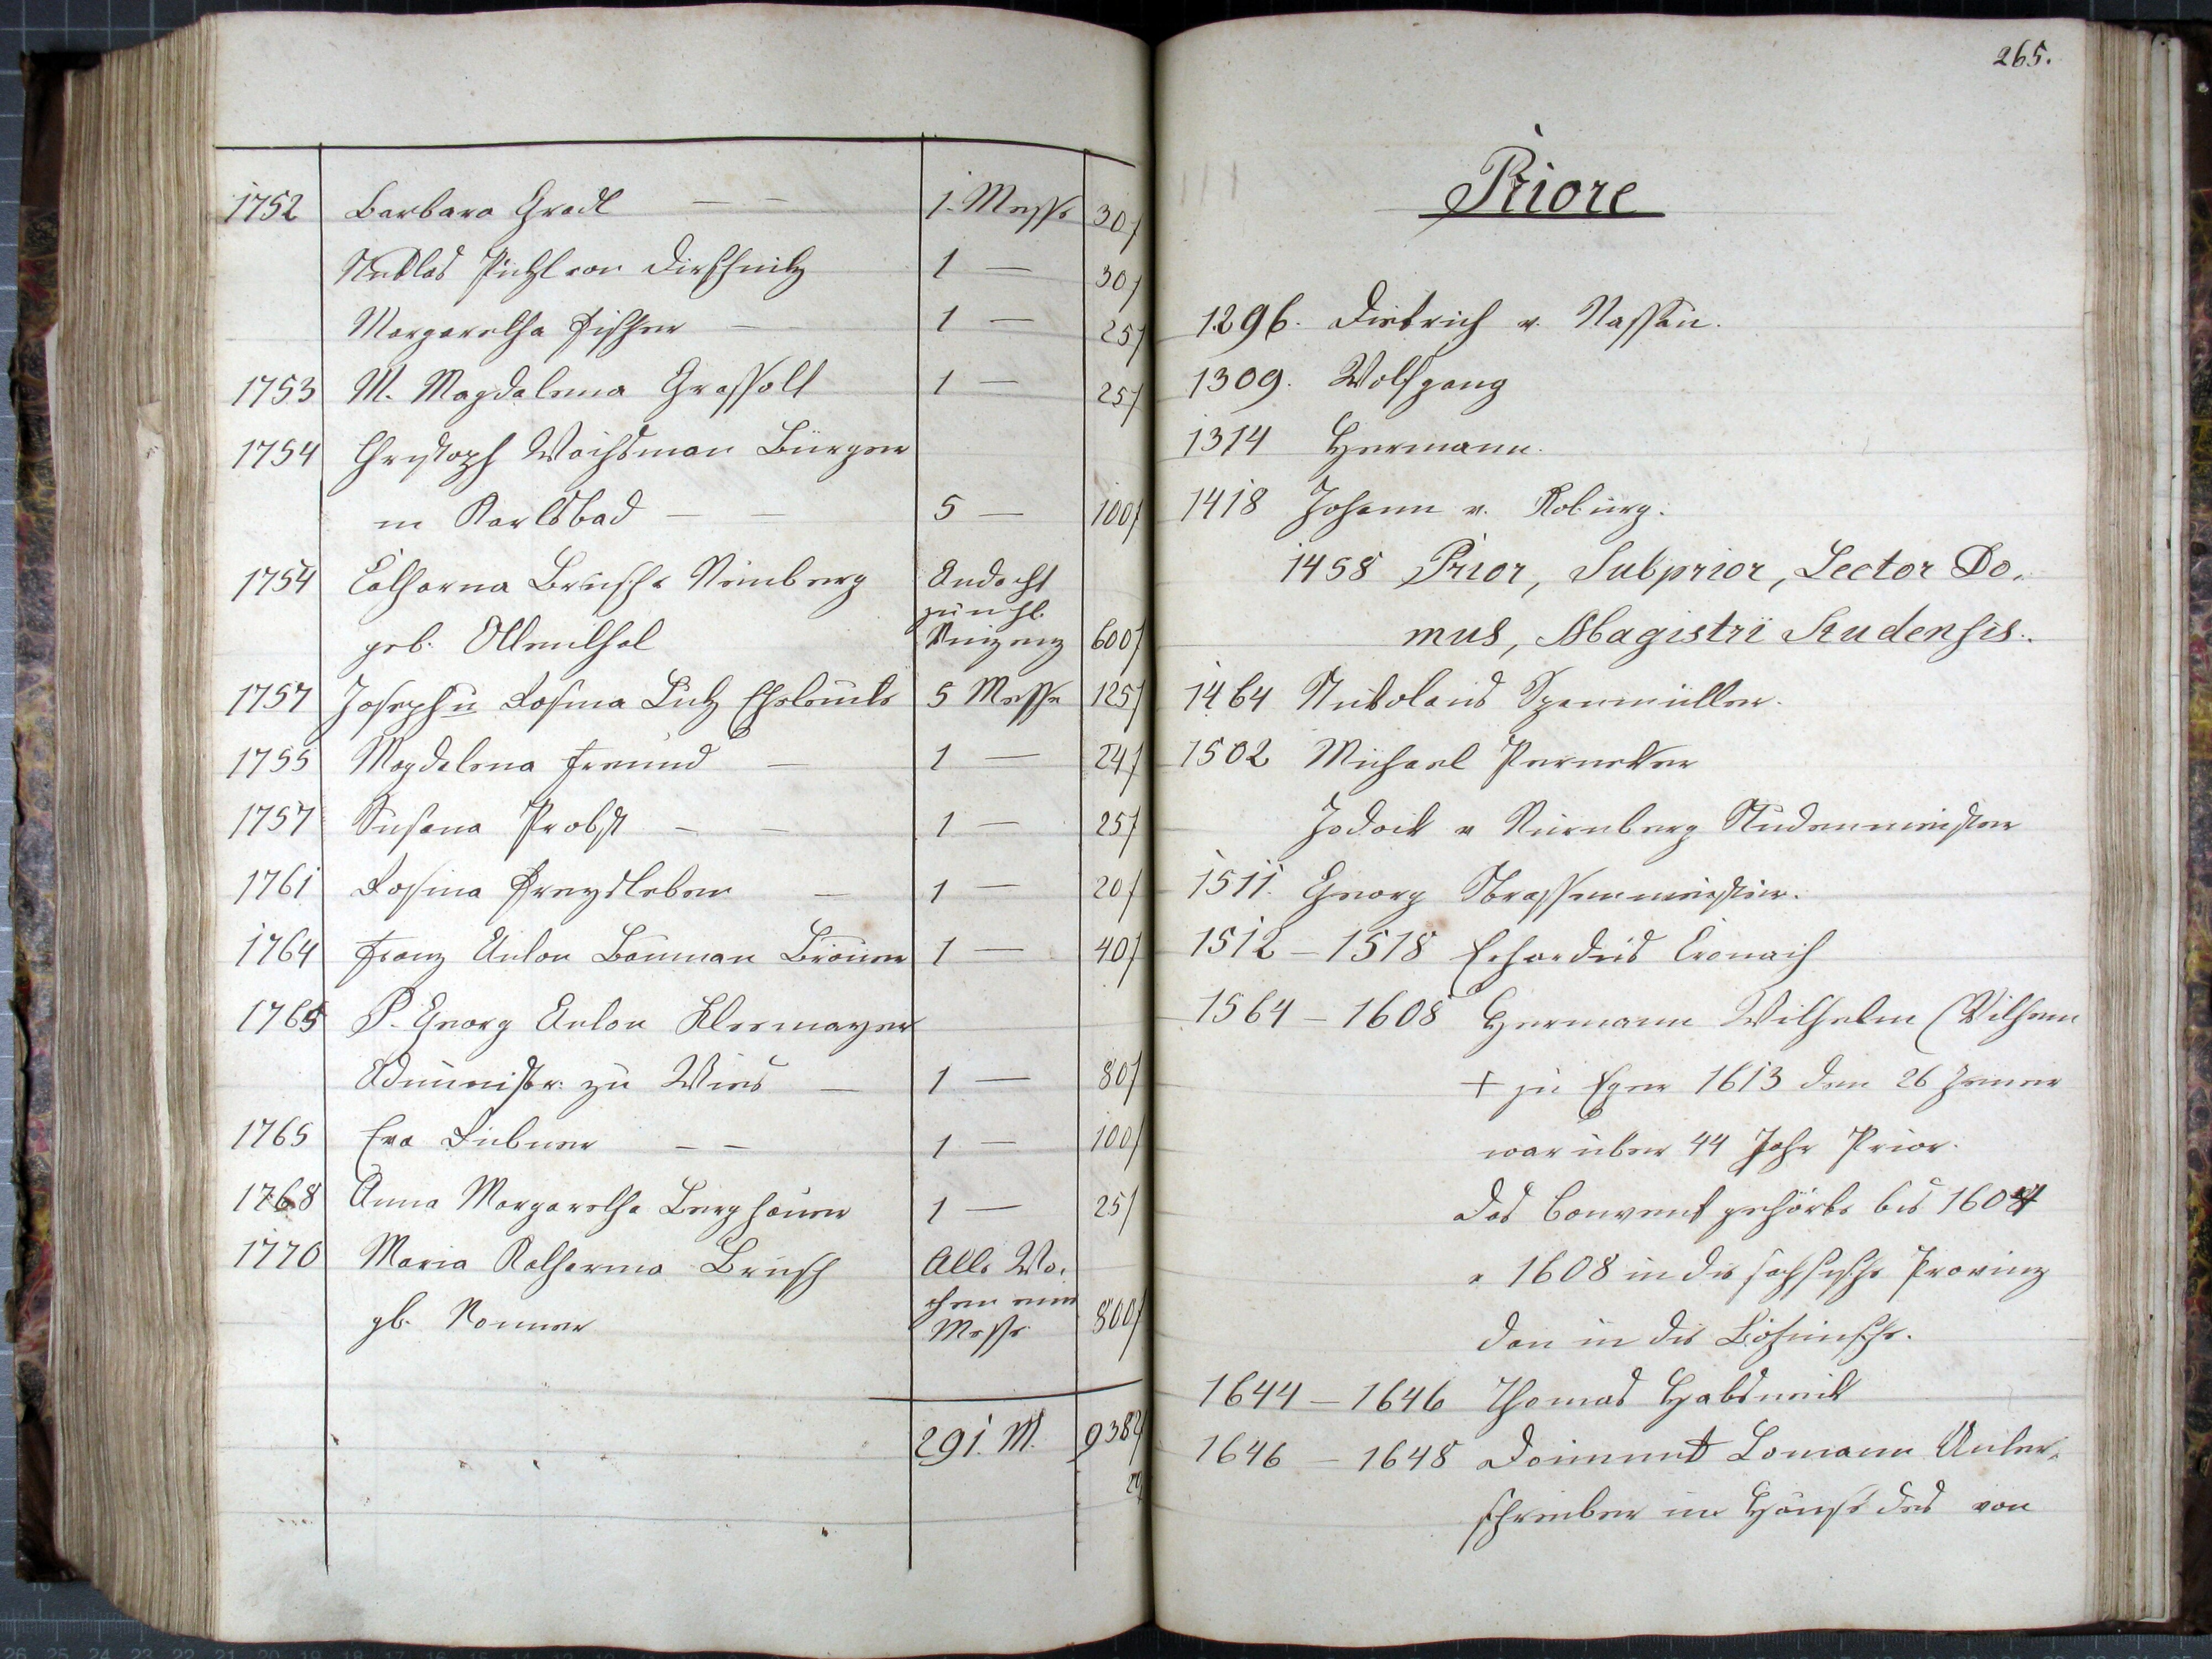 1752 Barbara Gradl — — 1. Messe 30f
Niklas Pichl von Dirschnitz 1 — 30f
Margaretha Fischer — 1 — 25f
1753 M. Magdalena Grassolt 1 — 25f
1754 Christoph Wachsman Bürger
in Karlsbad — — 5 — 100f
1754 Catharna Brusch v Steinberg Andacht
zum hl.
geb. Ottenthal Vinzenz 600f
1757 Joseph u Rosina Lutz Eheleute 5 Messe 125f
1755 Magdalena Freund — 1 — 24f
1757 Susana Probst — — 1 — 25f
1761 Rosina Freysleben — 1 — 20f
1764 Franz Anton Bauman Bräuer 1 — 40f
1765 P. Georg Anton Kleemayer
Administr: zu Wies — 1 — 80f
1765 Eva Liebner — — 1 — 100f
1768 Anna Margaretha Berghauer 1 — 25f
1770 Maria Katharina Brusch Alle Wo-
chen eine
gb. Nonner Messe 800f
291. M. 938
265.
Priore
1296. Dietrich v. Nassau.
1309. Wolfgang
1314 Hermann.
1418 Johann v. Koburg.
1458 Prior, Subprior, Lector Do-
mus, Magistri Studensis.
1464 Nikolaus Spanmüller.
1502 Michael Pernecker
Jodock v Nürnberg Studenmeister
1511. Georg Strassenmeister.
1512 – 1518 Erhardus Cronach
1564 – 1608 Hermann Wilhelm (Vilhem
+ zu Eger 1613 den 26 Jenner
war über 44 Jahr Prior.
Das Convent gehörte bis 1604
v 1608 in die sächsische Provinz
dan in die Böhmische.
1644 – 1646 Thomas Habsmit
1646 – 1648 Lomann Unter-
schreiber im Hause des von